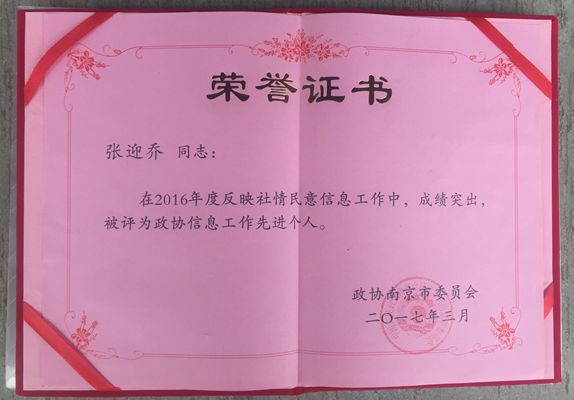 荣誉证书
张迎乔 同志：
在2016年度反映社情民意信息工作中，成绩突出，
被评为政协信息工作先进个人。
政协南京市委员会
二〇一七年三月